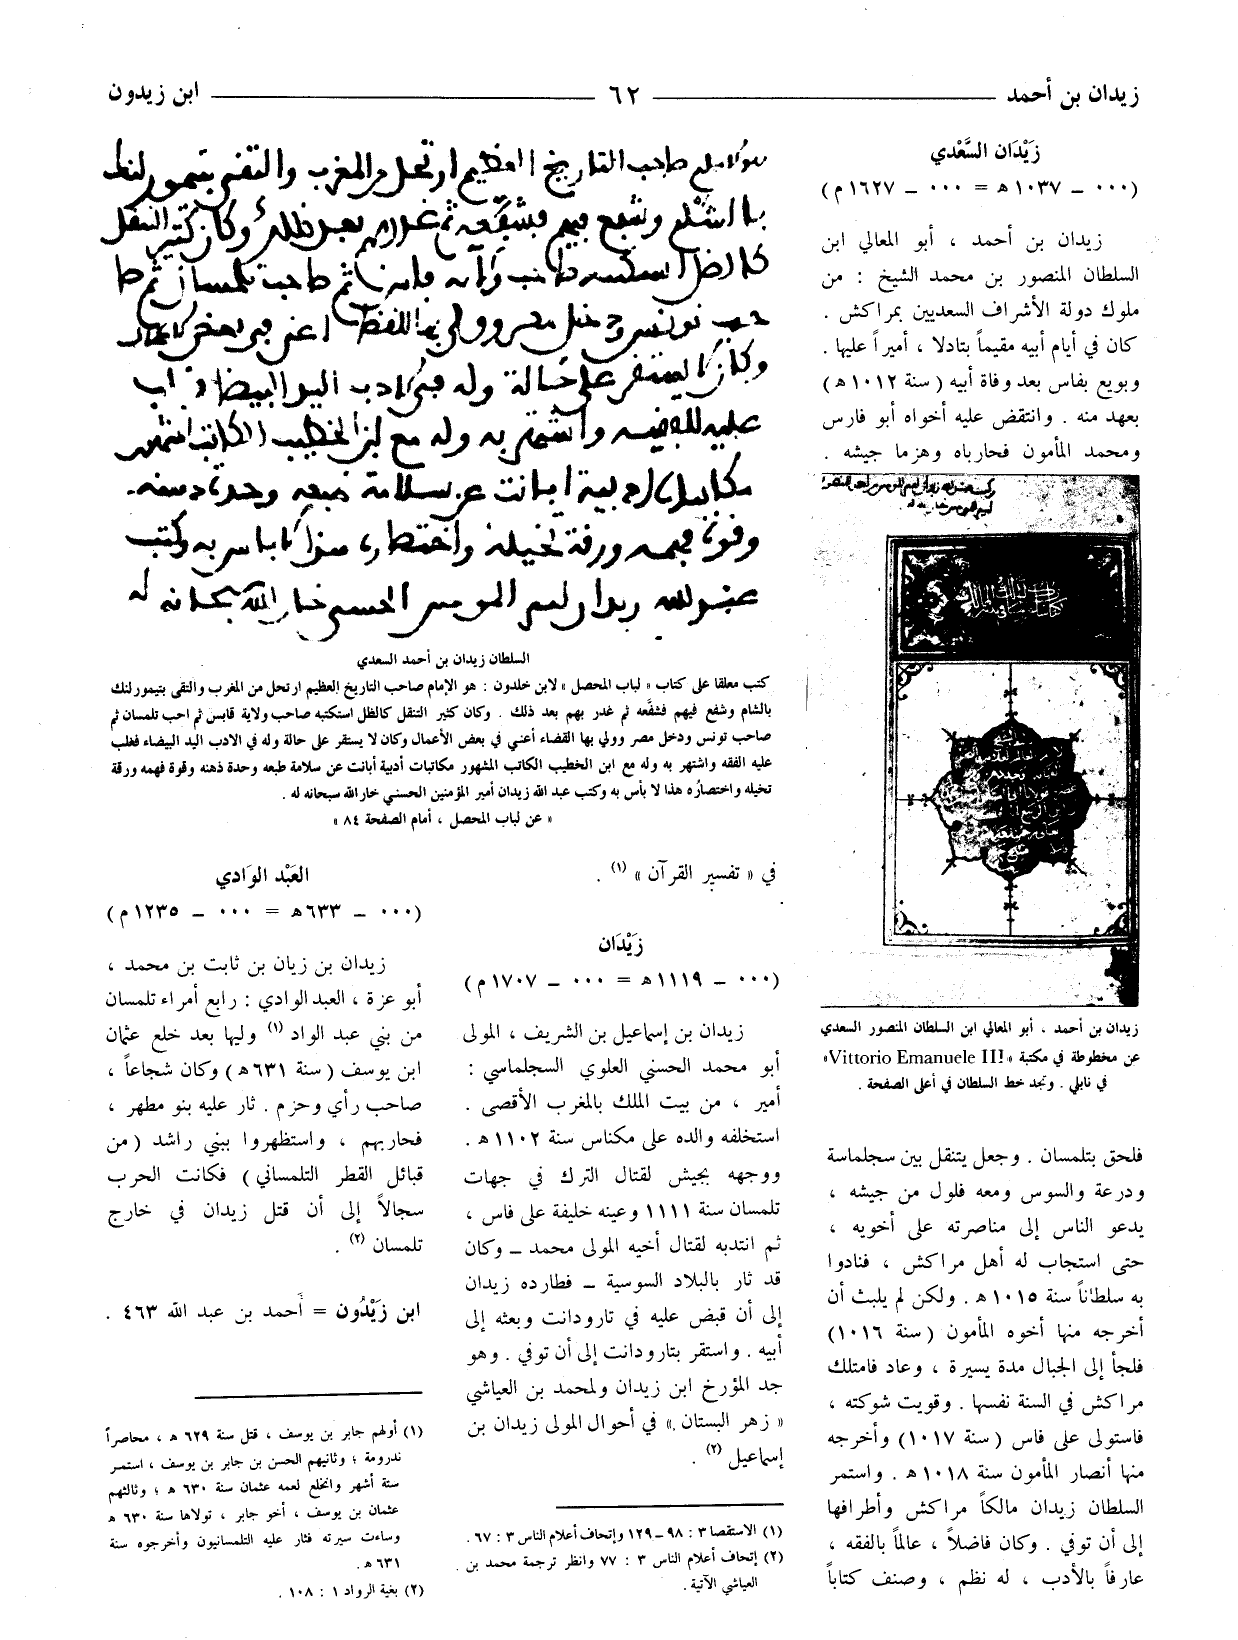 زيدان بن أحمد ٦٢ ابن زيدون
زَيْدَان السَّعْدي
(٠٠٠ ـ ١٠٣٧ هـ = ٠٠٠ ـ ١٦٢٧ م)
زيدان بن أحمد ، أبو المعالي ابن
السلطان المنصور بن محمد الشيخ : من
ملوك دولة الأشراف السعديين بمراكش .
كان في أيام أبيه مقيماً بتادلا ، أميراً عليها .
وبويع بفاس بعد وفاة أبيه ( سنة ١٠١٢ هـ )
بعهد منه . وانتقض عليه أخواه أبو فارس
ومحمد المأمون فحارباه وهزما جيشه .
زيدان بن أحمد ، أبو المعالي ابن السلطان المنصور السعدي
عن مخطوطة في مكتبة «Vittorio Emanuele II!»
في نابلي . وتجد خط السلطان في أعلى الصفحة .
فلحق بتلمسان . وجعل يتنقل بين سجلماسة
ودرعة والسوس ومعه فلول من جيشه ،
يدعو الناس إلى مناصرته على أخويه ،
حتى استجاب له أهل مراكش ، فنادوا
به سلطاناً سنة ١٠١٥ هـ . ولكن لم يلبث أن
أخرجه منها أخوه المأمون ( سنة ١٠١٦ )
فلجأ إلى الجبال مدة يسيرة ، وعاد فامتلك
مراكش في السنة نفسها . وقويت شوكته ،
فاستولى على فاس ( سنة ١٠١٧ ) وأخرجه
منها أنصار المأمون سنة ١٠١٨ هـ . واستمر
السلطان زيدان مالكاً مراكش وأطرافها
إلى أن توفي . وكان فاضلاً ، عالماً بالفقه ،
عارفاً بالأدب ، له نظم ، وصنف كتاباً
السلطان زيدان بن أحمد السعدي
كتب معلقا على كتاب « لباب المحصل » لابن خلدون : هو الإمام صاحب التاريخ العظيم ارتحل من المغرب والتقى بتيمورلنك
بالشام وشفع فيهم فشفَّعه ثم غدر بهم بعد ذلك . وكان كثير التنقل كالظل استكتبه صاحب ولاية قابس ثم احب تلمسان ثم
صاحب تونس ودخل مصر وولي بها القضاء أعني في بعض الأعمال وكان لا يستقر على حالة وله في الادب اليد البيضاء فغلب
عليه الفقه واشتهر به وله مع ابن الخطيب الكاتب المشهور مكاتبات أدبية أبانت عن سلامة طبعه وحدة ذهنه وقوة فهمه ورقة
تخيله واختصاره هذا لا بأس به وكتب عبد الله زيدان أمير المؤمنين الحسني خار الله سبحانه له .
« عن لباب المحصل ، أمام الصفحة ٨٤ »
في « تفسير القرآن » (١) .
زَيْدَان
(٠٠٠ ـ ١١١٩ هـ = ٠٠٠ ـ ١٧٠٧ م)
زيدان بن إسماعيل بن الشريف ، المولى
أبو محمد الحسني العلوي السجلماسي :
أمير ، من بيت الملك بالمغرب الأقصى .
استخلفه والده على مكناس سنة ١١٠٢ هـ .
ووجهه بجيش لقتال الترك في جهات
تلمسان سنة ١١١١ وعينه خليفة على فاس ،
ثم انتدبه لقتال أخيه المولى محمد ـ وكان
قد ثار بالبلاد السوسية ـ فطارده زيدان
إلى أن قبض عليه في تارودانت وبعثه إلى
أبيه . واستقر بتارودانت إلى أن توفي . وهو
جد المؤرخ ابن زيدان ولمحمد بن العياشي
« زهر البستان » في أحوال المولى زيدان بن
إسماعيل (٢) .
(١) الاستقصا ٣ : ٩٨ ـ ١٢٩ وإتحاف أعلام الناس ٣ : ٦٧ .
(٢) إتحاف أعلام الناس ٣ : ٧٧ وانظر ترجمة محمد بن
العياشي الآتية .
العَبْد الوَادي
(٠٠٠ ـ ٦٣٣ هـ = ٠٠٠ ـ ١٢٣٥ م)
زيدان بن زيان بن ثابت بن محمد ،
أبو عزة ، العبد الوادي : رابع أمراء تلمسان
من بني عبد الواد (١) وليها بعد خلع عثمان
ابن يوسف ( سنة ٦٣١ هـ ) وكان شجاعاً ،
صاحب رأي وحزم . ثار عليه بنو مطهر ،
فحاربهم ، واستظهروا ببني راشد ( من
قبائل القطر التلمساني ) فكانت الحرب
سجالاً إلى أن قتل زيدان في خارج
تلمسان (٢) .
ابن زَيْدُون = أحمد بن عبد الله ٤٦٣ .
(١) أولهم جابر بن يوسف ، قتل سنة ٦٢٩ هـ ، محاصراً
ندرومة ؛ وثانيهم الحسن بن جابر بن يوسف ، استمر
ستة أشهر وانخلع لعمه عثمان سنة ٦٣٠ هـ ؛ وثالثهم
عثمان بن يوسف ، أخو جابر ، تولاها سنة ٦٣٠ هـ
وساءت سيرته فثار عليه التلمسانيون وأخرجوه سنة
٦٣١ هـ .
(٢) بغية الرواد ١ : ١٠٨ .